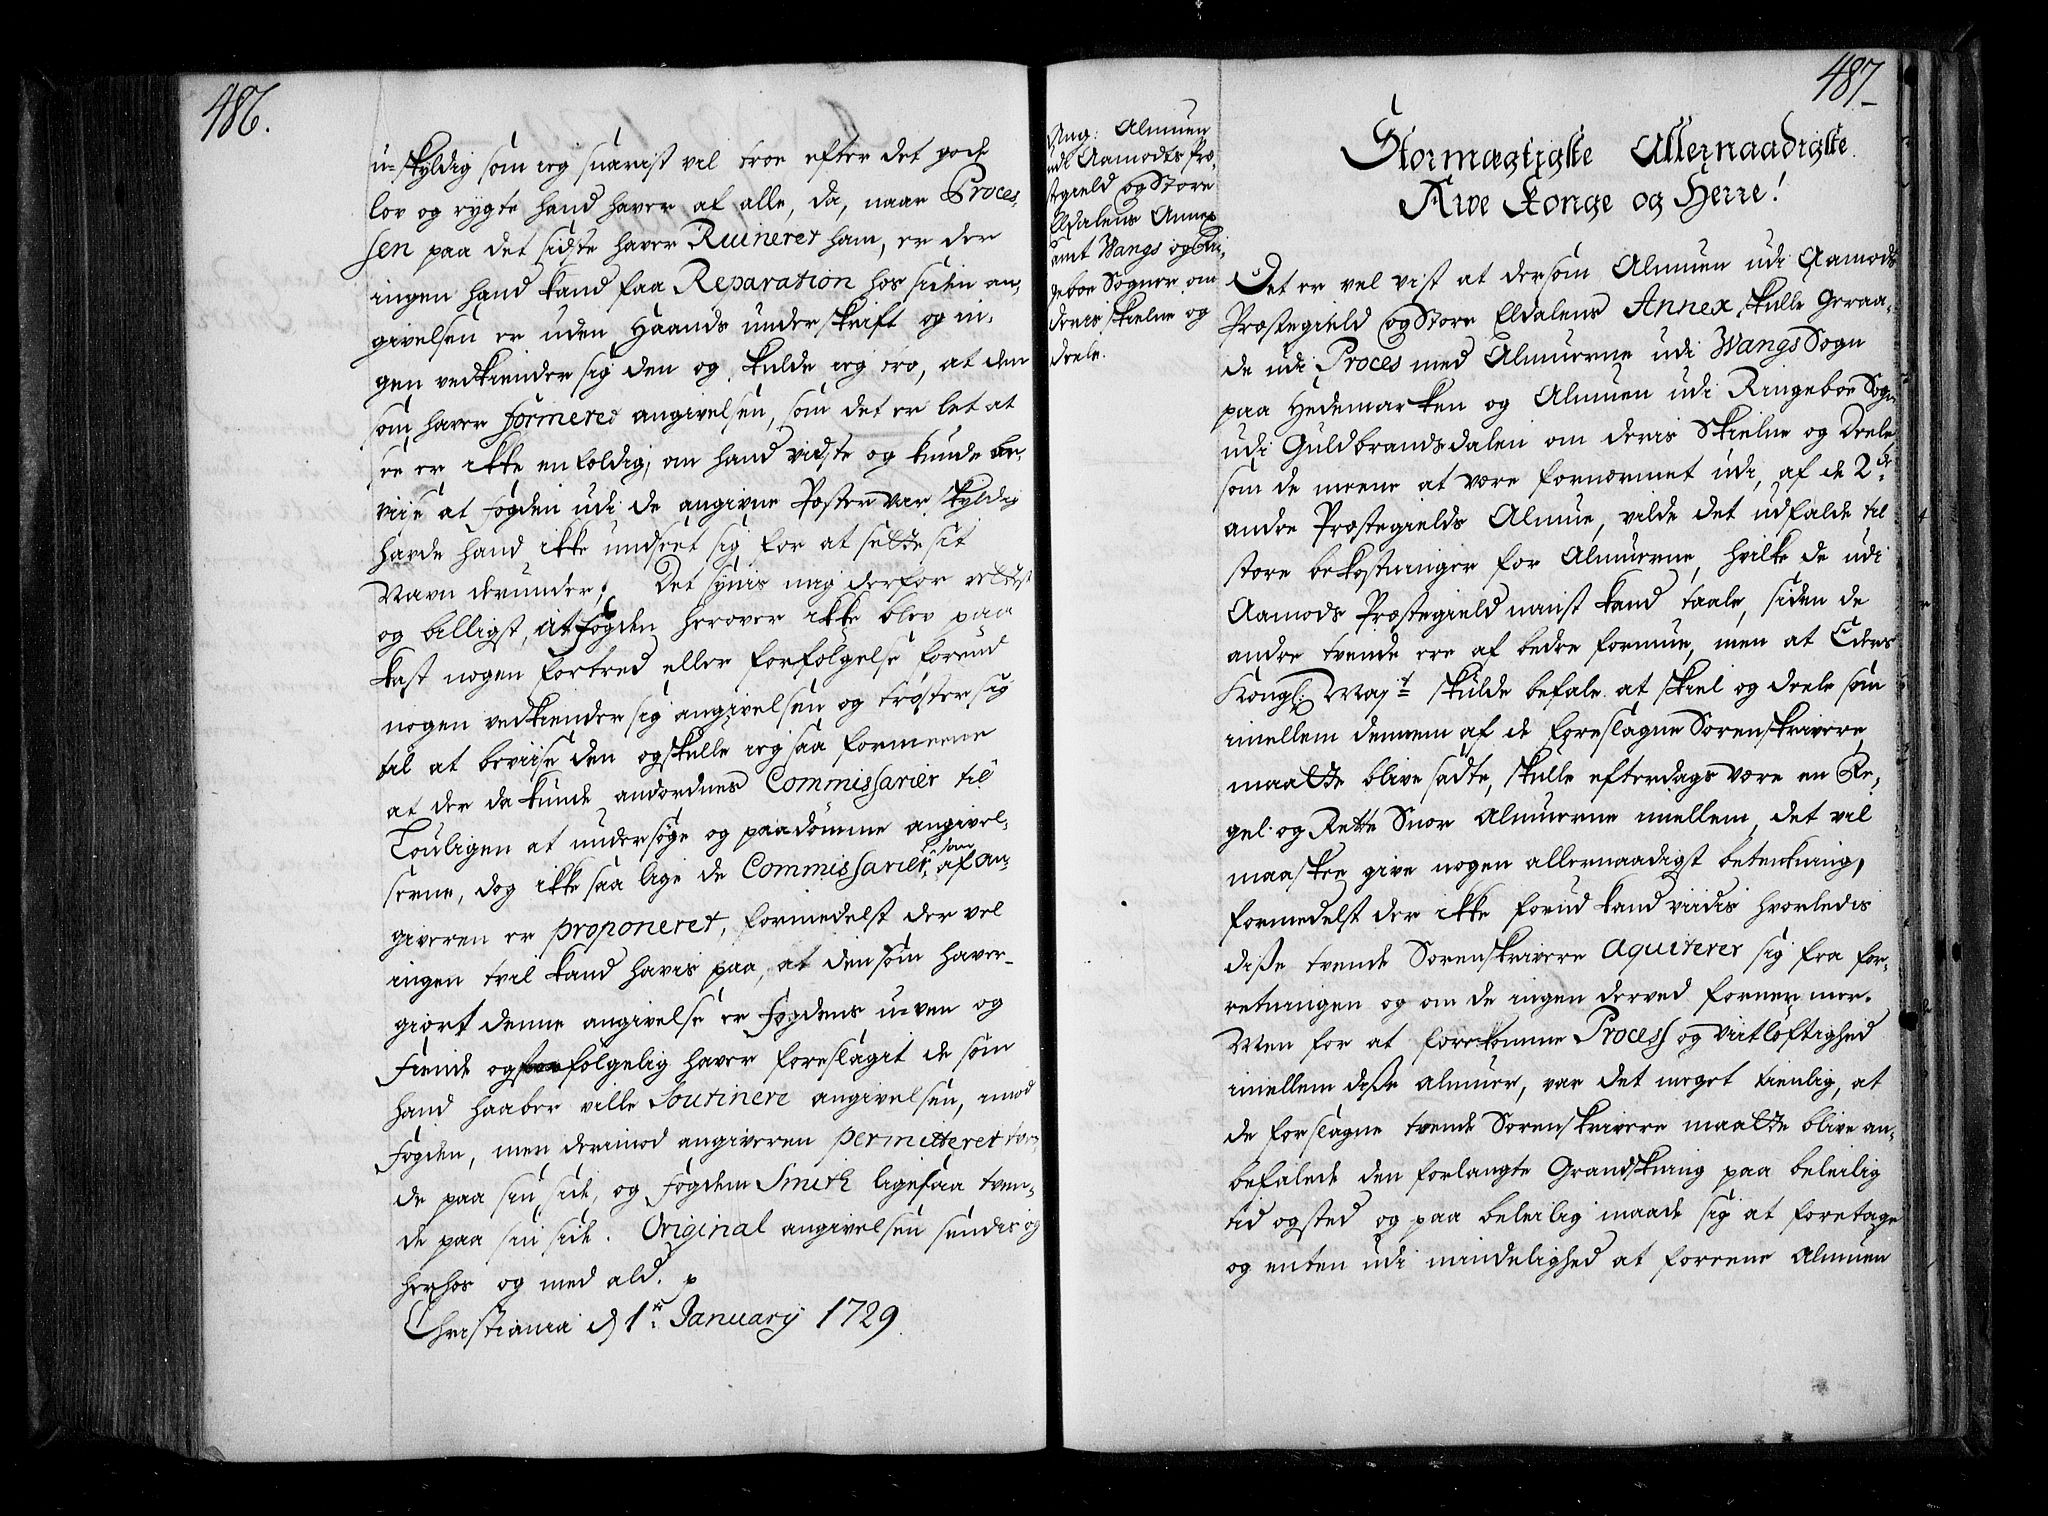 486.
u-skyldig som ieg snarist vil troe efter det gode
lov og rygte hand haver af alle, da, naar Proces,
sen paa det sidste haver Ruineret ham, er der
ingen hand kand faa Reparation hos siden an,
givelsen er uden Haands underskrift og in,
gen vedkiender sig den og skulde ieg tro, at den
som haver formeret angivelsen, som det er let at
see er ikke enfoldig, om hand vidste og kunde be,
viise at Fogden udi de angivne Poster var skyldig
hafde hand ikke undseet sig for at sette sit
Navn derunder; Det synis mig derfor rettest
og billigst, at Fogden herover ikke blev paa
kast nogen fortred eller forfølgelse forend
nogen vedkiender sig angivelsen og trøster sig
til at beviise den og skulle ieg saa formeene
at der da kunde andordnes Commissarier til
Louligen at undersøge og paadømme angivel,
serne, dog ikke saa lige de Commissarier, som af an,
giveren er proponeret, formedelst der vel
ingen tvil kand havis paa, at den som haver
giort denne angivelse er Fogdens u-ven og
Fiende og følgelig haver foreslagit de som
hand haaber ville Soutinere angivelsen, imod
Fogden, men derimod angiveren permitteret tven
de paa sin side, og Fogden Smith ligesaa tven,
de paa sin side. Original angivelsen sendis og
herhos og med ald. p
Christiania d 1te January 1729.
487
Ang: Almuen
udi Aamodts Præ,
stegield og Store
Eldalens Annex
samt Wangs og Rin,
geboe Sogner om
deris skielne og
deele.
Stormægtigste Allernaadigste
Arve Konge og Herre!
Det er vel vist at dersom Almuen udi Aamods
Præstegield og Store Eldalens Annex, skulle Geraa,
de udi Proces med Almuerne udi Wangs Sogn
paa Hedemarken og Almuen udi Ringeboe Sogn
udi Guldbrandsdalen om deris Skielne og Deele
som de meene at være fornærmet udi, af de 2de
andre Præstegields Almue, vilde det udfalde til
store bekostninger for Almuerne, hvilke de udi
Aamods Præstegield minst kand taale, siden de
andre tvende ere af bedre formue, men at Eders
Kongl: Mayt skulde befale at skiel og deele som
imellem dennem af de foreslagne Sorenskrivere
maatte blive sadte, skulle efterdags være en Re,
gel og Rette Snor Almuerne imellem, det vil
maaskee give nogen allernaadigst betenkning,
formedelst der ikke forud kand viidis hvorledis
disse tvende Sorenskrivere aquiterer sig fra for,
retningen og om de ingen derved fornermer.
Men for at forekomme Process og viitløftighed
imellem disse almuer, var det meget tienlig, at
de forslagne tvende Sorenskrivere maatte blive an,
befalede den forlangte Grandskning paa beleilig
tid og sted og paa beleilig maade sig at foretage
og enten udi mindelighed at foreene Almuen